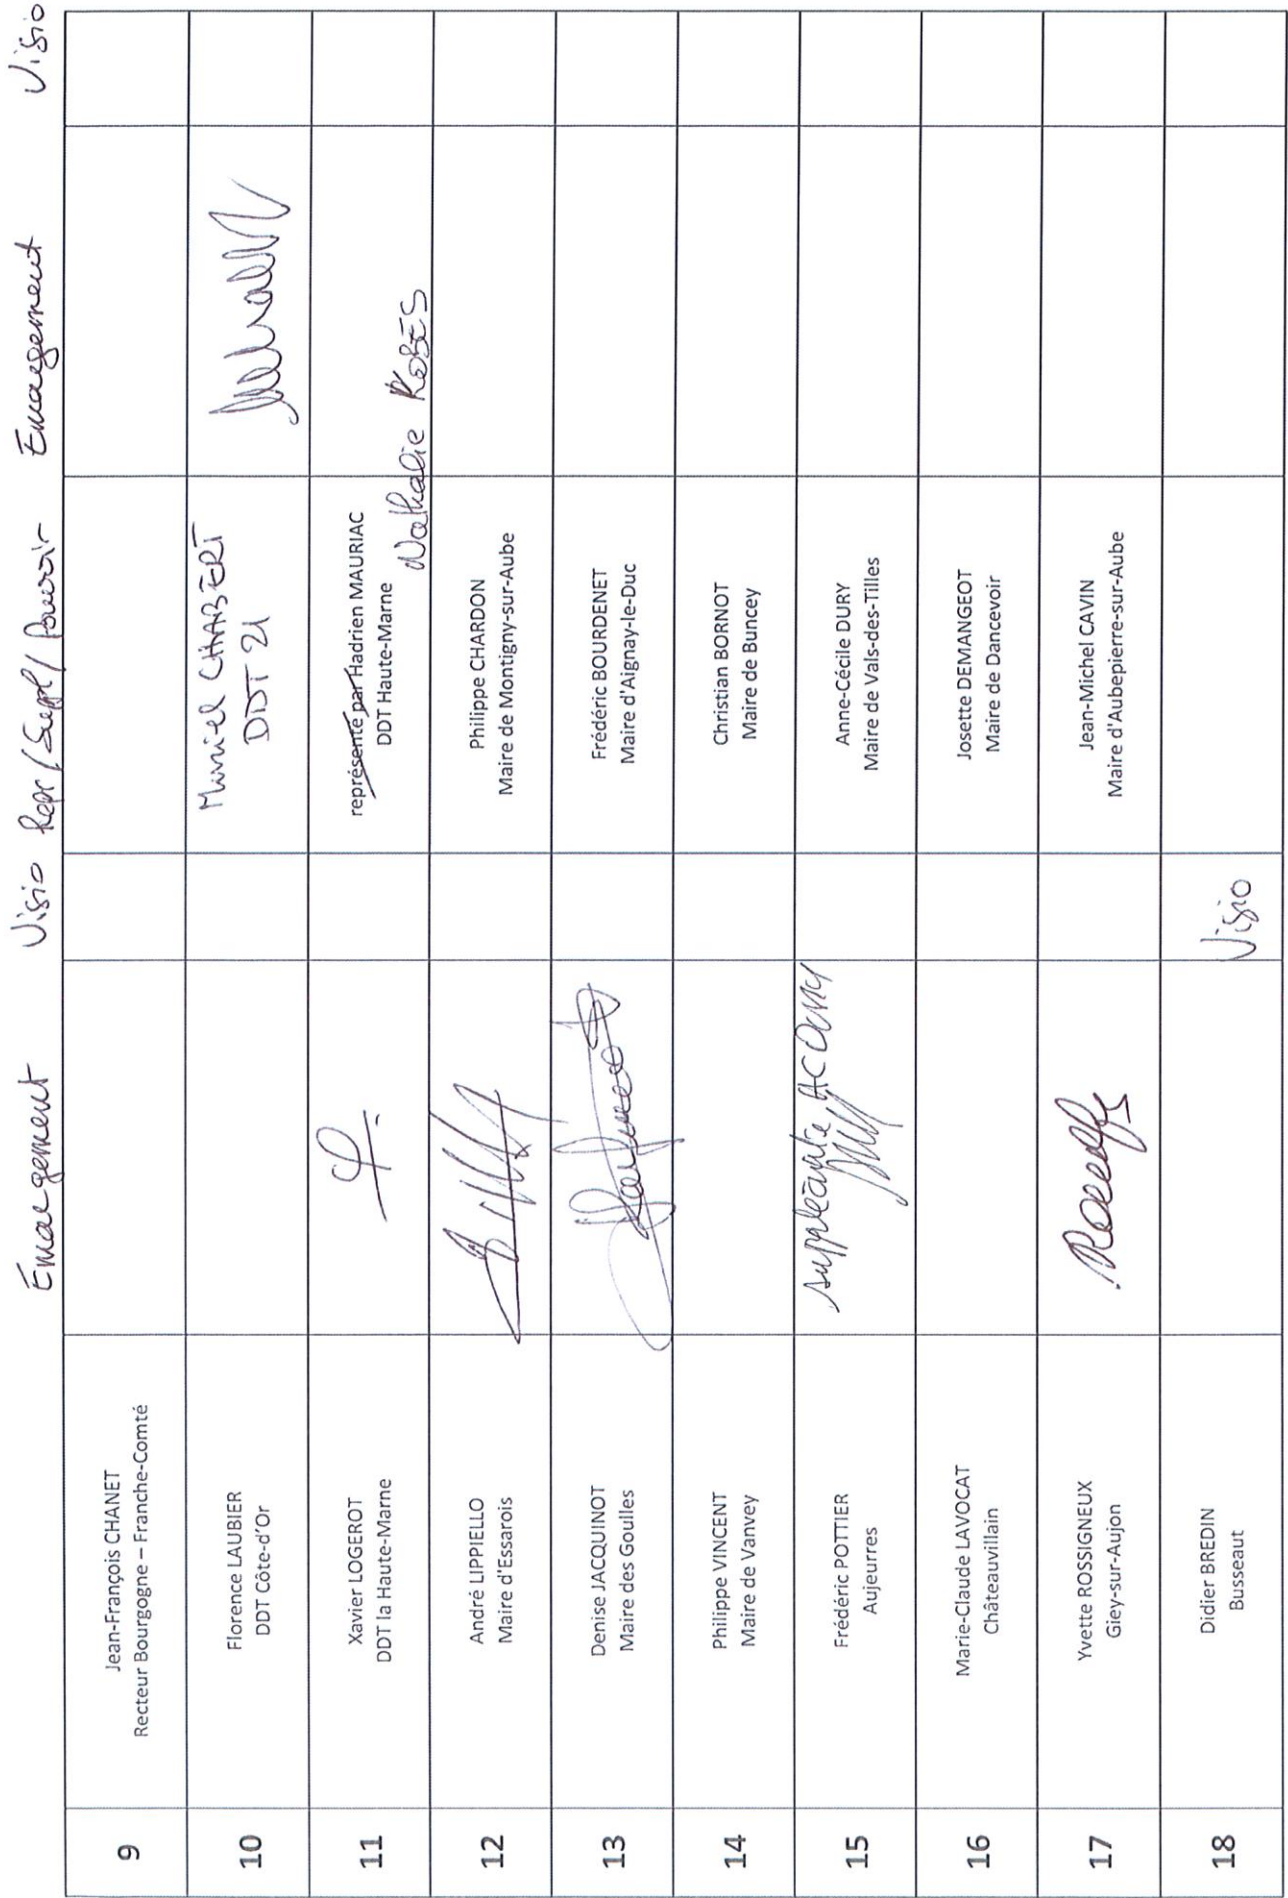 Émargement Visio Repr/Suppl/Pouvoir Émargement Visio
9
Jean-François CHANET
Recteur Bourgogne – Franche-Comté
10
Florence LAUBIER
DDT Côte-d'Or
Muriel CHABERT
DDT 21
11
Xavier LOGEROT
DDT la Haute-Marne
représenté par Hadrien MAURIAC
DDT Haute-Marne
Nathalie
12
André LIPPIELLO
Maire d'Essarois
Philippe CHARDON
Maire de Montigny-sur-Aube
13
Denise JACQUINOT
Maire des Goulles
Frédéric BOURDENET
Maire d'Aignay-le-Duc
14
Philippe VINCENT
Maire de Vanvey
Christian BORNOT
Maire de Buncey
15
Frédéric POTTIER
Aujeurres
suppléante AC DURY
Anne-Cécile DURY
Maire de Vals-des-Tilles
16
Marie-Claude LAVOCAT
Châteauvillain
Josette DEMANGEOT
Maire de Dancevoir
17
Yvette ROSSIGNEUX
Giey-sur-Aujon
Jean-Michel CAVIN
Maire d'Aubepierre-sur-Aube
18
Didier BREDIN
Busseaut
Visio